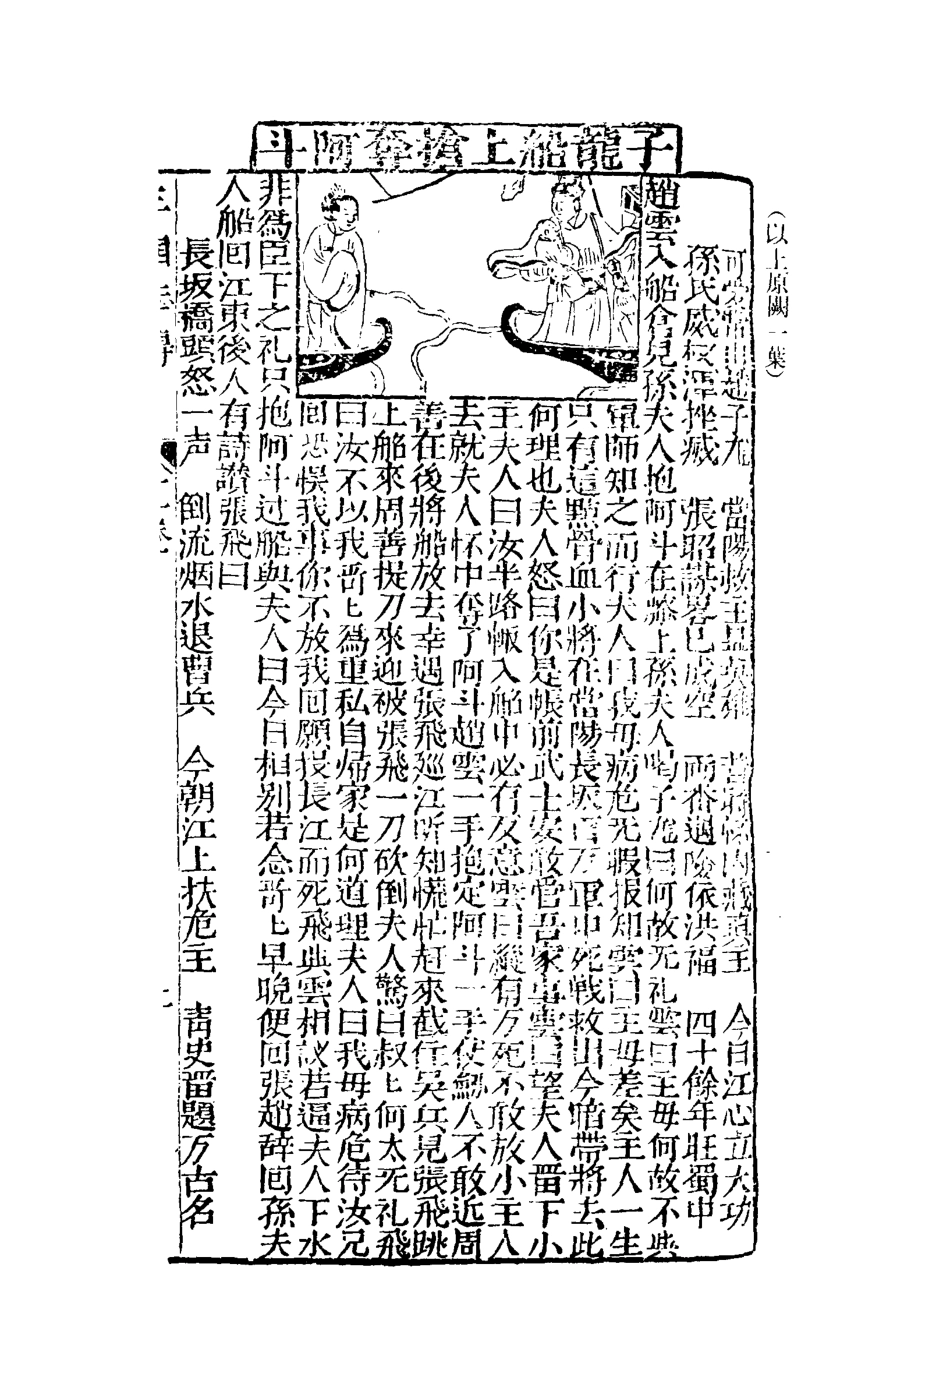 子龍船上搶奪阿斗
（以上原闕一葉）
趙子龙　當陽救主显英雄　昔時懷內藏真主　今日江心立大功
孫氏威权渾挫滅　張昭謀畧已成空　兩番遇险依洪福　四十餘年旺蜀中
趙雲入船倉見孫夫人抱阿斗在縧上孫夫人喝子龙曰何故无礼雲曰主毋何故不與
軍師知之而行夫人曰我毋病危无暇报知雲曰主毋差矣主人一生
只有這點骨血小將在當陽長坂百万軍中死戰救出今暗帶將去此
何理也夫人怒曰你是帳前武士安敢管吾家事雲曰望夫人畱下小
主夫人曰汝半路輒入船中必有反意雲曰縱有万死不敢放小主人
去就夫人怀中奪了阿斗趙雲一手抱定阿斗一手使鎗人不敢近周
善在後將船放去幸遇張飛廵江所知慌忙赶來截住吳兵見張飛跳
上船來周善提刀來迎被張飛一刀砍倒夫人驚曰叔匕何太无礼飛
曰汝不以我哥匕爲重私自帰家是何道理夫人曰我毋病危待汝兄
囘恐悮我事你不放我囘願投長江而死飛與雲相議若逼夫人下水
非爲臣下之礼只抱阿斗过船與夫人曰今日相別若念哥匕早晚便囘張趙辞囘孫夫
人船囘江東後人有詩讃張飛曰
長坂橋頭怒一声　倒流烟水退曹兵　今朝江上扶危主　青史畱題万古名